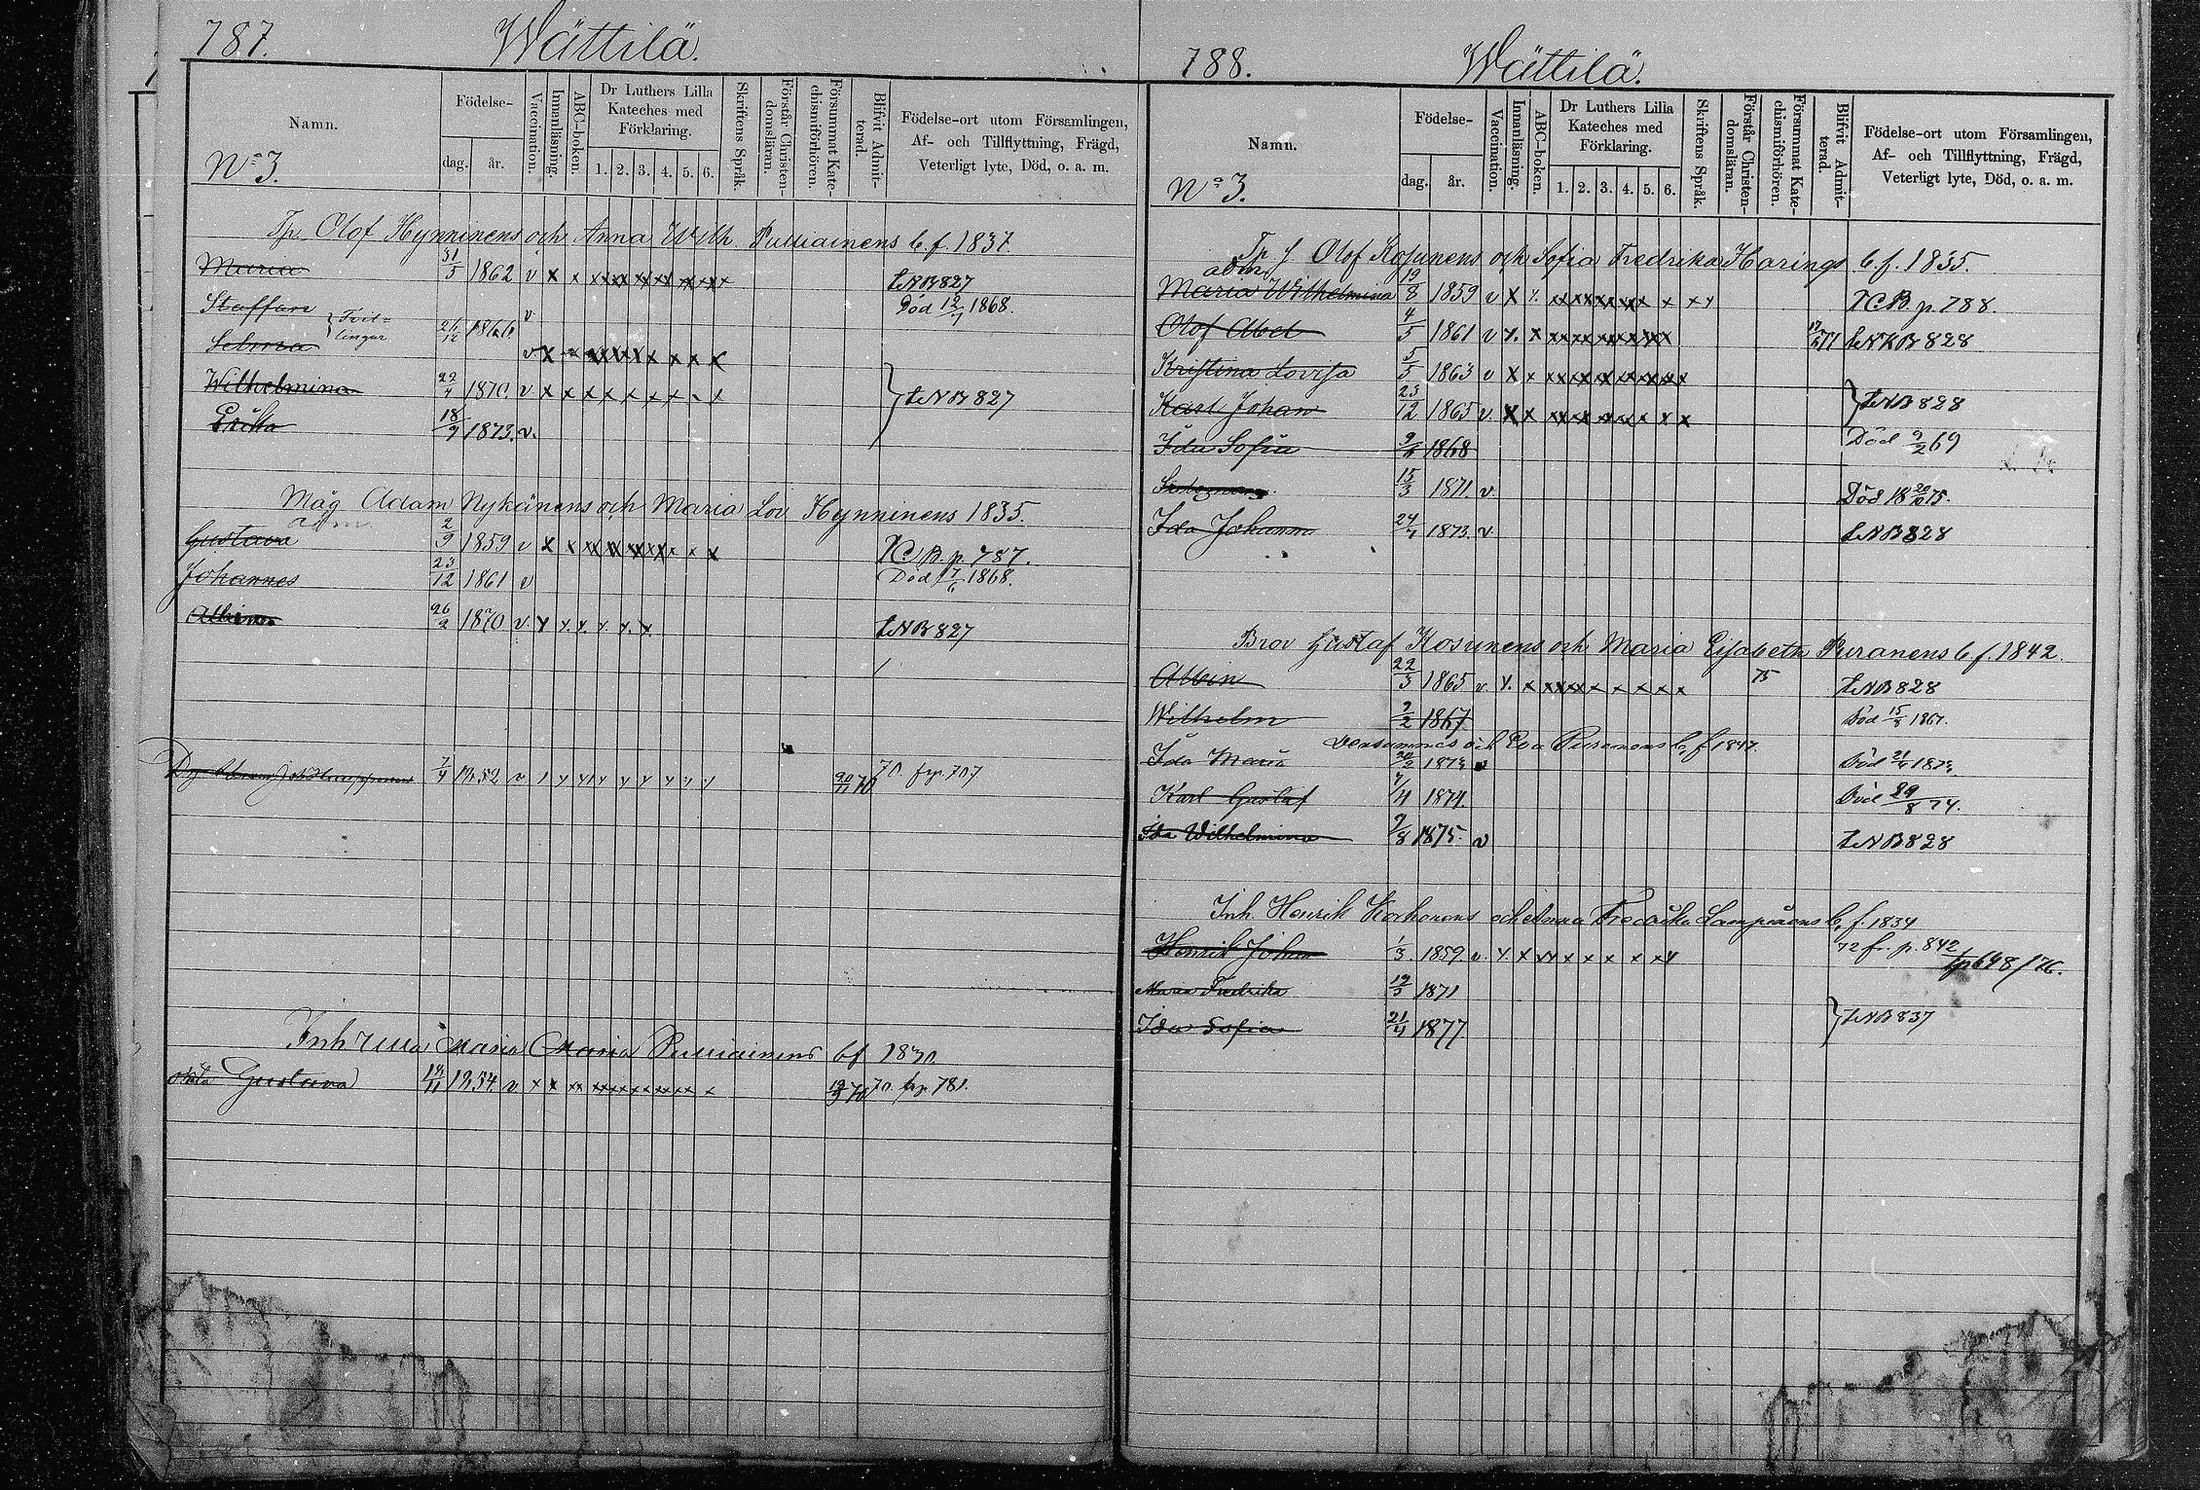 787. Wättilä.
Namn.
No 3.
Födelse-
dag. år.
Vaccination.
Innanläsning.
ABC-boken.
Dr Luthers Lilla Kateches med Förklaring.
1. 2. 3. 4. 5. 6.
Skriftens Språk.
Förstår Christendomsläran.
Försummat Katechismiförhören.
Blifvit Admitterad.
Födelse-ort utom Församlingen,
Af- och Tillflyttning, Frägd,
Veterligt lyte, Död, o. a. m.
Tp. Olof Hynninens och Anna Wilh. Pulliainens b. f. 1837.
Maria 31/5 1862 v x x x x x x x x x NB 827
Staffan v Död 12/7 1868.
Tvillingar 21/12
Selma v x x x x x x x
Wilhelmina 22/4 1870. v x x x x x x x x NB 827
Erika 18/9 1873. v.
Måg Adam Nykänens och Maria Lov. Hynninens 1835.
adm.
Gustava 2/9 1859 v x x x x x x x x x CB. p. 787.
Johannes 23/12 1861 v Död 1868.
26/2 1870 v. x x. x. x x. x. NB 827
7/4 1852 v x x x x x x x x x 20/11 70 70. fr p. 707
Inh enka Maria Maria Pulliainens bf
Gustava 1854. v x x x x x x x x x 70. fr p. 781.
788. Wättilä.
Namn.
No 3.
Födelse-
dag. år.
Vaccination.
Innanläsning.
ABC-boken.
Dr Luthers Lilla Kateches med Förklaring.
1. 2. 3. 4. 5. 6.
Skriftens Språk.
Förstår Christendomsläran.
Försummat Katechismiförhören.
Blifvit Admitterad.
Födelse-ort utom Församlingen,
Af- och Tillflyttning, Frägd,
Veterligt lyte, Död, o. a. m.
Tp. f Olof Kosunens och Sofia Fredrika Harings b. f. 1835.
adm
Maria Wilhelmina 19/8 1859 v x x. x x x x x x x x CB p. 788.
Olof Abel 4/5 1861 v x. x x x x x x x NB 828
Kristina Lovisa 5/5 1863 v x x x x x x x x x
Karl Johan 23/12 1865 v. x x x x x x x x x NB 828
Ida Sofia 1868 Död 9/2 69
15/3 1871. v. Död 18 20/ 75.
Ida Johanna 24/7 1873. v. NB 828
Bror Gustaf Kosunens och Maria Elisabeth Puranens b f. 1842.
Albin 22/3 1865 v x. x x x x x x x x 75 NB 828
Wilhelm 9/2 1867. Död 15/8 1867.
Densammes och Eva Pusenens b. f 1847.
Ida Maria v Död
Karl Gustaf 1874. Död 29/8 74.
Ida Wilhelmina 9/8 1875. v NB 828
Inh. Henrik Korhonens och Anna Fredrika b. f. 1834
Henrik Johan 1/3 1859. v. x. x x x x x x x x 72 fr. p. 842
tp 648/76.
Maria Fredrika 1871
Ida Sofia 1877. NB 837